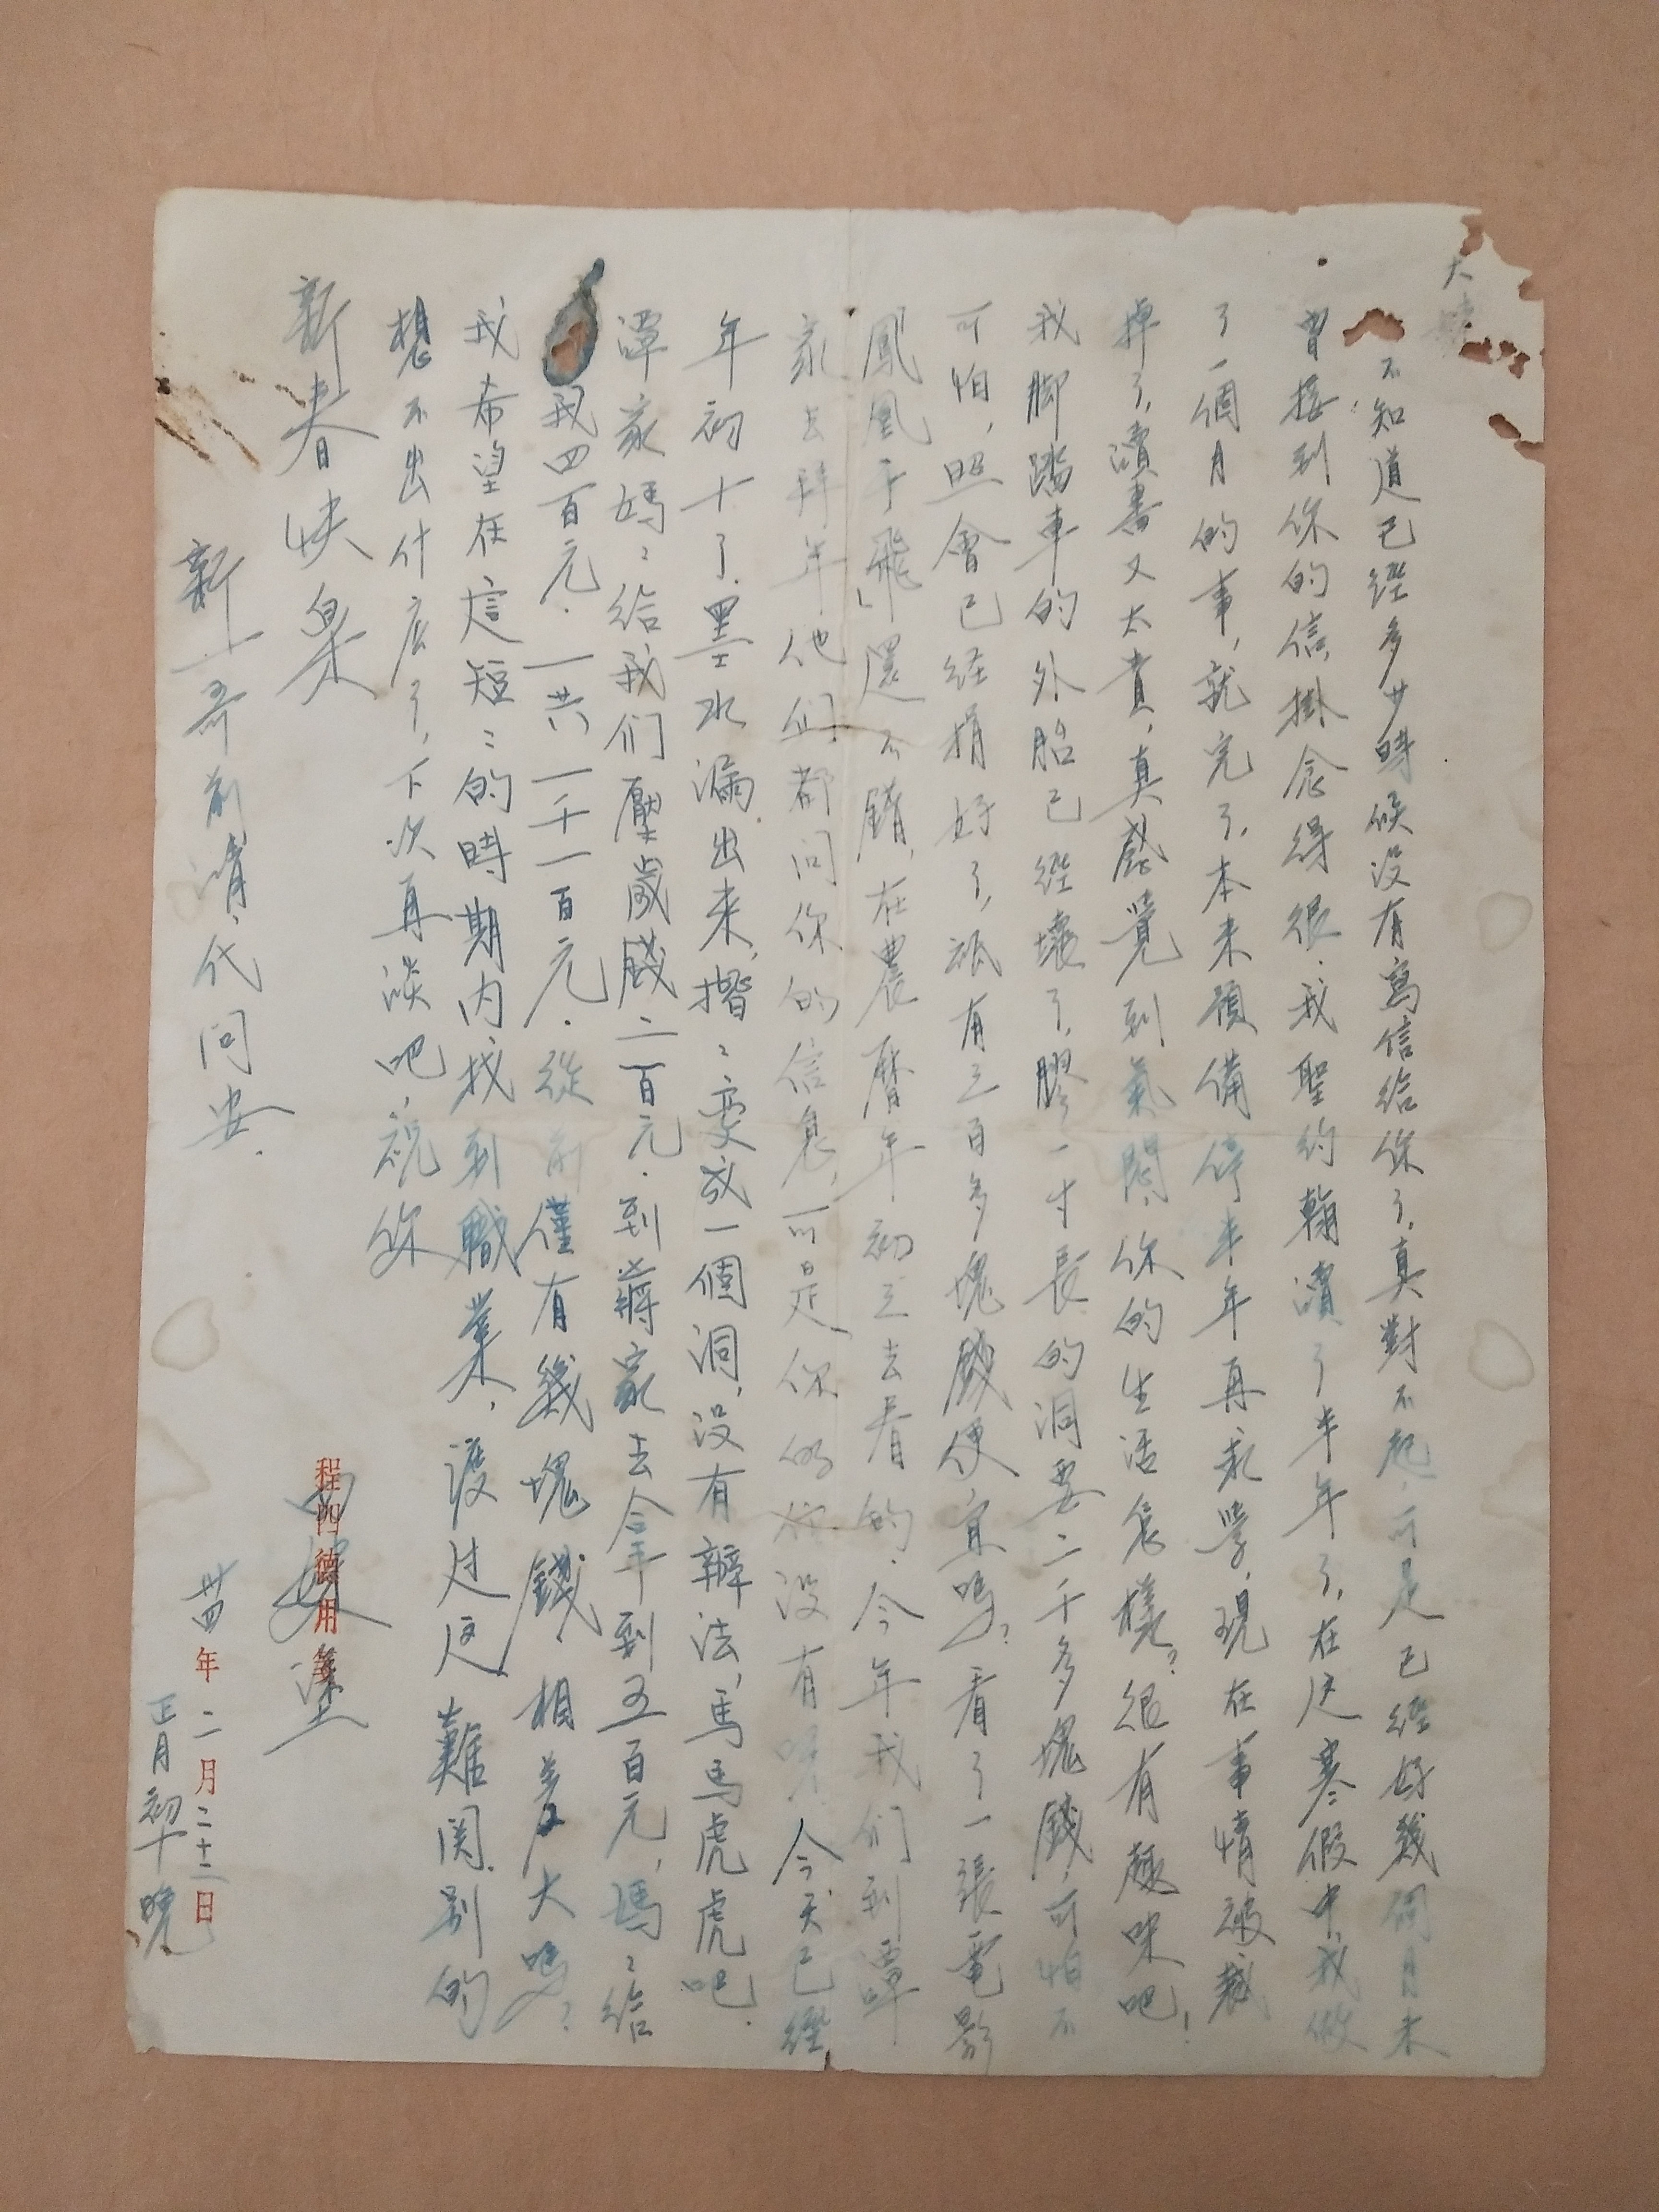 大
不知道已經多少時候没有寫信給你了，真對不起，可是已經好幾個月未
曾接到你的信，掛念得很．我聖約翰讀了半年了，在这寒假中，我做
了一個月的事，就完了，本来預備停半年再求學，現在事情被裁
掉了，讀書又太貴，真感覺到氣悶，你的生活怎樣？很有趣味吧！
我脚踏車的外胎已經壞了，膠一寸長的洞要二千多塊錢，可怕不
可怕，照會已经捐好了，祇有三百多塊錢便宜嗎？看了一張電影
「鳳凰于飛」還不錯，在農曆年初三去看的．今年我们到譚
家去拜年，他们都問你的信息，可是你的信没有呀．今天已經
年初十了．墨水漏出来，揩〻變成一個洞，没有辦法，馬馬虎虎吧．
譚家媽〻給我们壓歲錢二百元．到蔣家去拿到五百元，媽〻給
我四百元．一共一千一百元．從前僅有幾塊錢，相差大嗎？
我希望在這短〻的時期内找到職業，渡过这難関．别的
想不出什麽了，下次再談吧，祝你
新春快樂
程四德用箋
新一哥前請代問安．
卅四年二月二十二日
正月初十晚